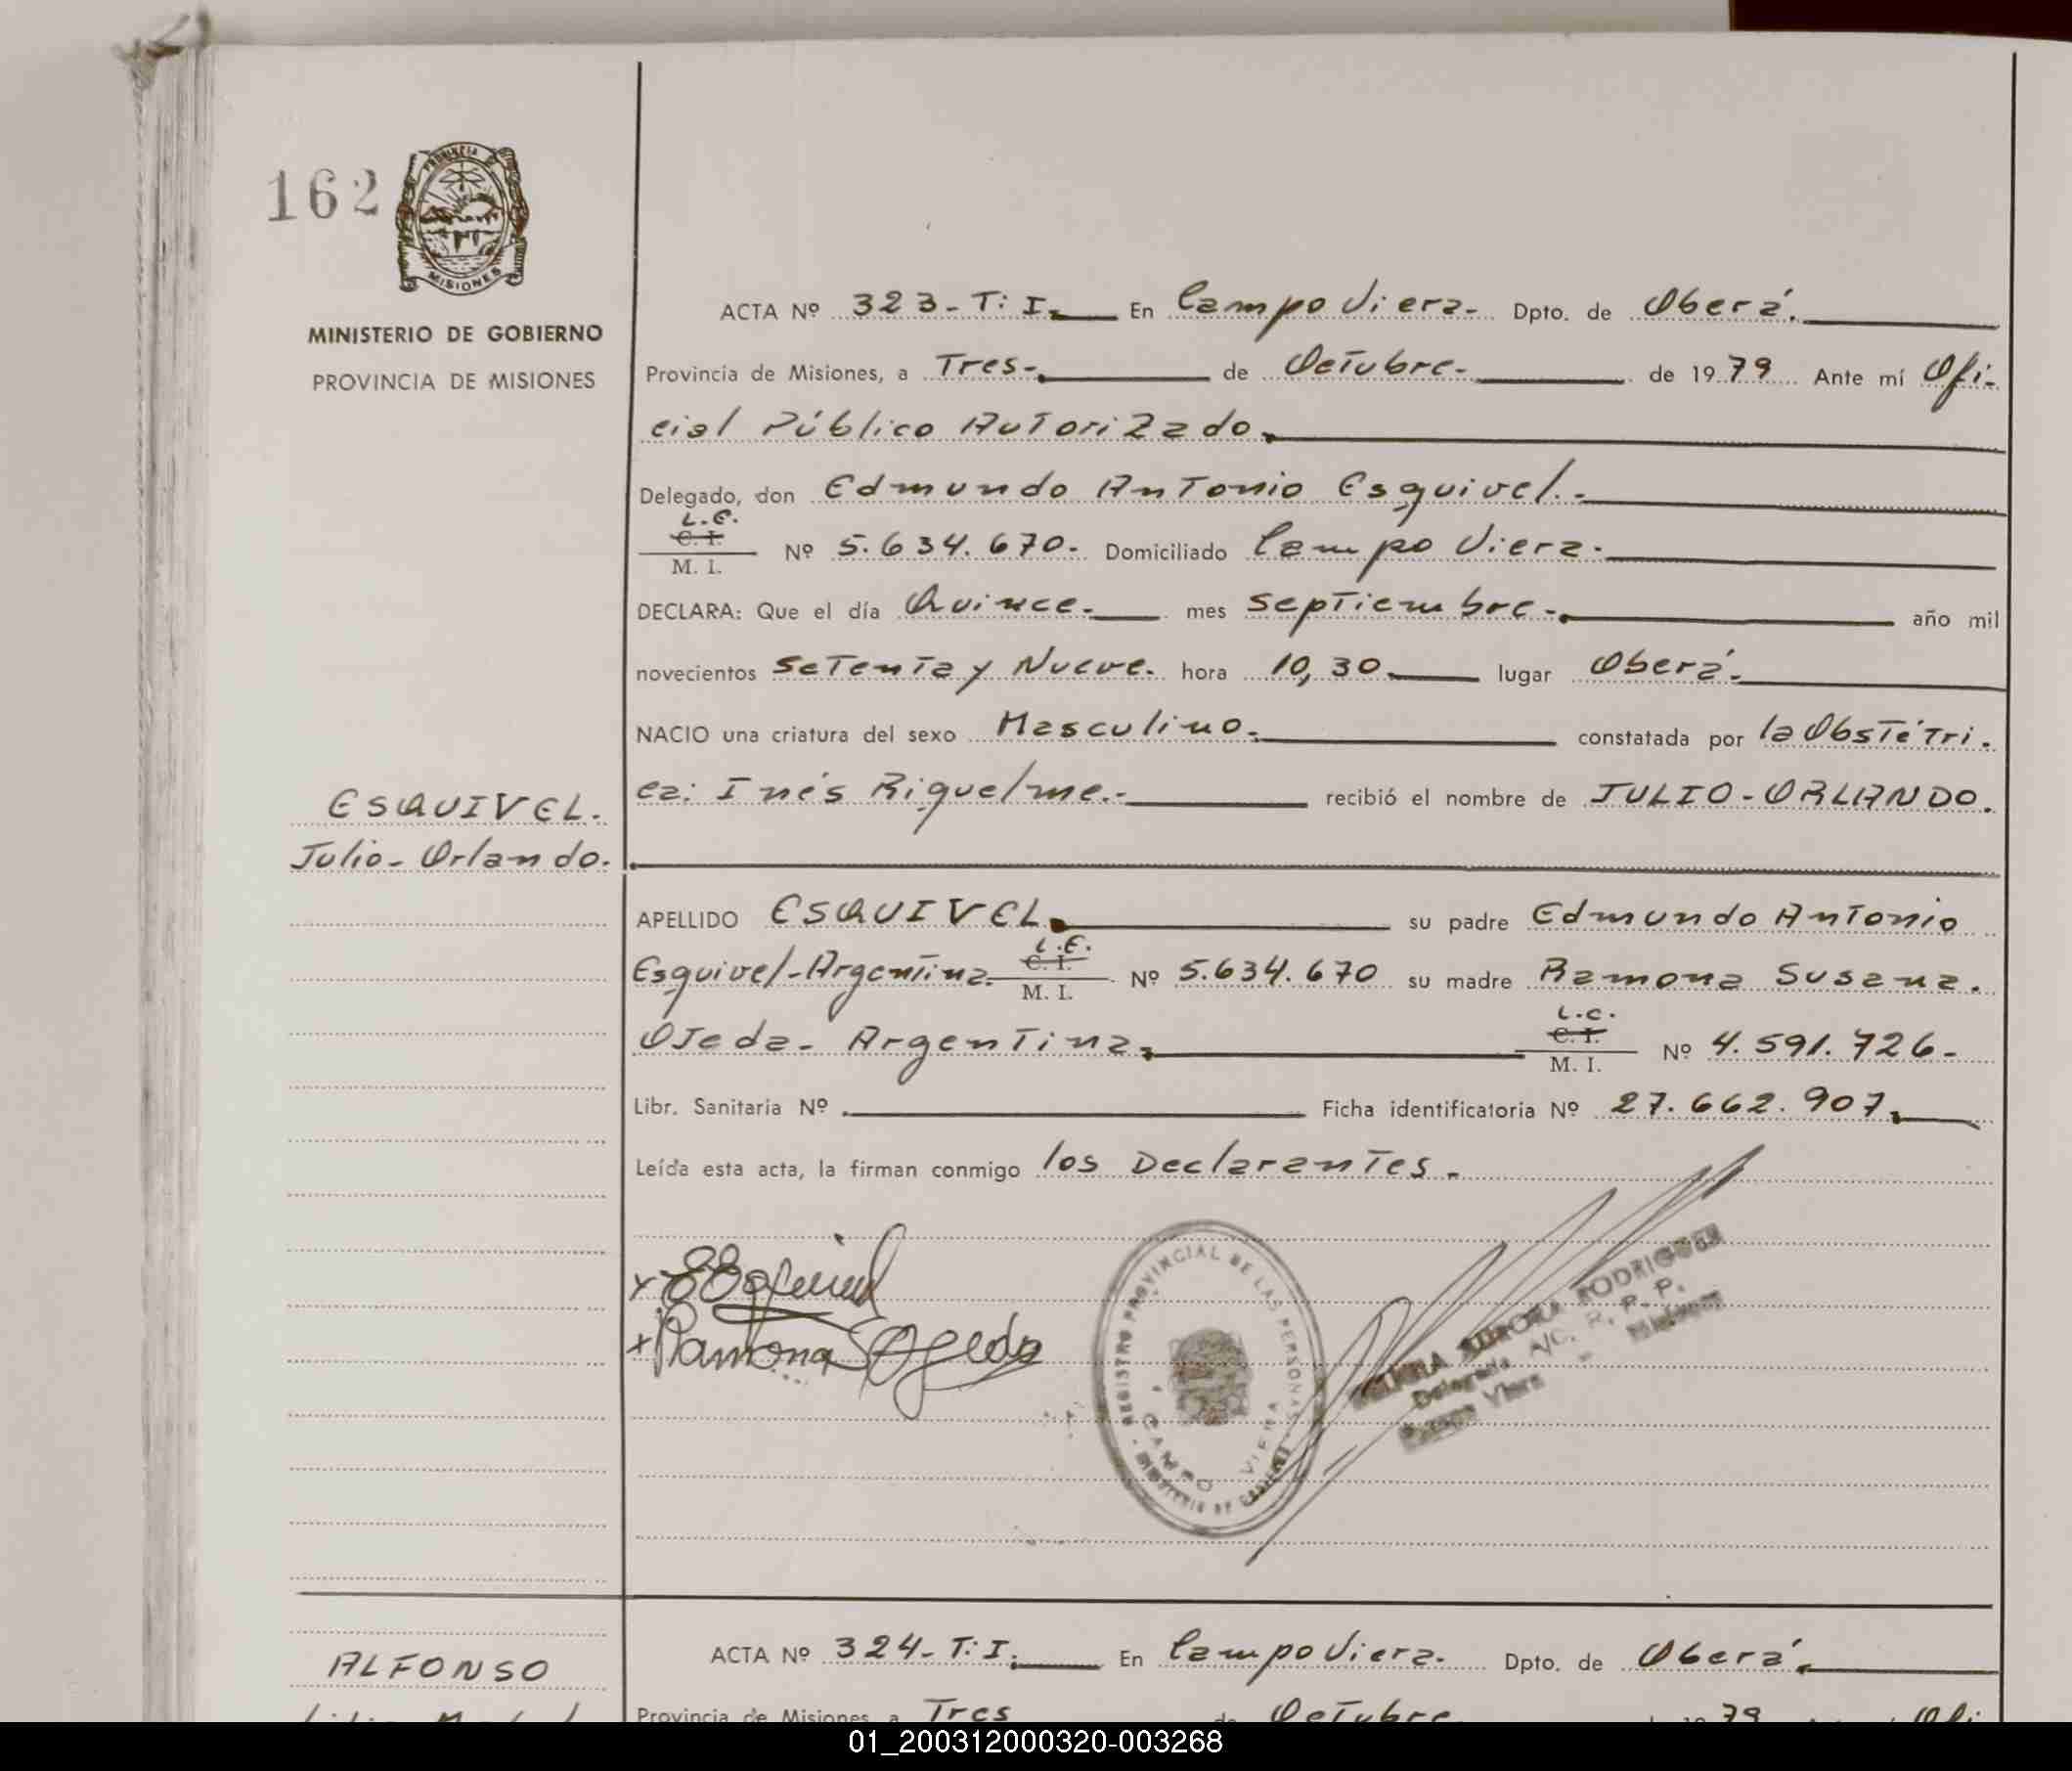 162
PROVINCIA DE
MISIONES
MINISTERIO DE GOBIERNO
PROVINCIA DE MISIONES
ACTA Nº 323-T: I. En Campo Viera. Dpto. de Oberá.
Provincia de Misiones, a Tres. de Octubre. de 1979 Ante mí Ofi-
cial Público Autorizado.
Delegado, don Edmundo Antonio Esquivel.
L.E.
C. I.
M. I.
Nº 5.634.670- Domiciliado Campo Viera.
DECLARA: Que el día Quince. mes septiembre. año mil
novecientos setenta y Nueve. hora 10,30. lugar Oberá.
NACIO una criatura del sexo Masculino. constatada por la Obstétri-
ca: Inés Riquelme.- recibió el nombre de JULIO-ORLANDO.
ESQUIVEL.
Julio-Orlando.
APELLIDO ESQUIVEL. su padre Edmundo Antonio
Esquivel-Argentina. L.E. C. I. M. I. Nº 5.634.670 su madre Ramona Susana.
Ojeda- Argentina. L.C. C. I. M. I. Nº 4.591.726-
Libr. Sanitaria Nº Ficha identificatoria Nº 27.662.907.
Leída esta acta, la firman conmigo los Declarantes.
x EEsquivel
x Ramona S Ojeda
REGISTRO PROVINCIAL DE LAS PERSONAS
CAMPO VIERA
MINISTERIO DE GOBIERNO
AURORA RODRIGUEZ
Delegada A/C. R. P. P.
Campo Viera - Misiones
ALFONSO
ACTA Nº 324-T: I. En Campo Viera. Dpto. de Oberá.
Provincia de Misiones a Tres de Octubre. 79 Ofi
01_200312000320-003268